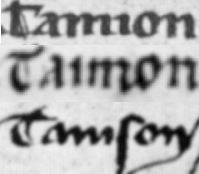 Tamion
Taimon
Tamson